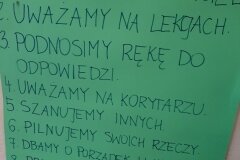 2. UWAŻAMY NA LEKCJACH.
3. PODNOSIMY RĘKĘ DO
ODPOWIEDZI.
4. UWAŻAMY NA KORYTARZU.
5 SZANUJEMY INNYCH.
6. PILNUJEMY SWOICH RZECZY.
7. DBAMY O PORZĄDEK